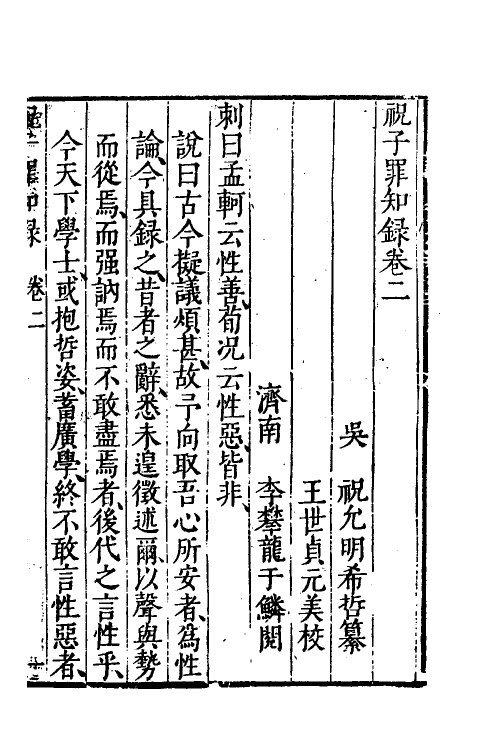 祝子罪知録卷二
吳　祝允明希哲纂
王世貞元美校
濟南　李攀龍于鱗閱
刺曰孟軻云性善、荀况云性惡、皆非、
說曰古今擬議煩甚、故予向取吾心所安者、為性
論、今具録之、昔者之辭、悉未遑徵述爾、以聲與勢
而從焉、而强訥焉而不敢盡焉者、後代之言性乎、
今天下學士、或抱哲姿、蓄廣學、終不敢言性惡者、
罪知録　卷二